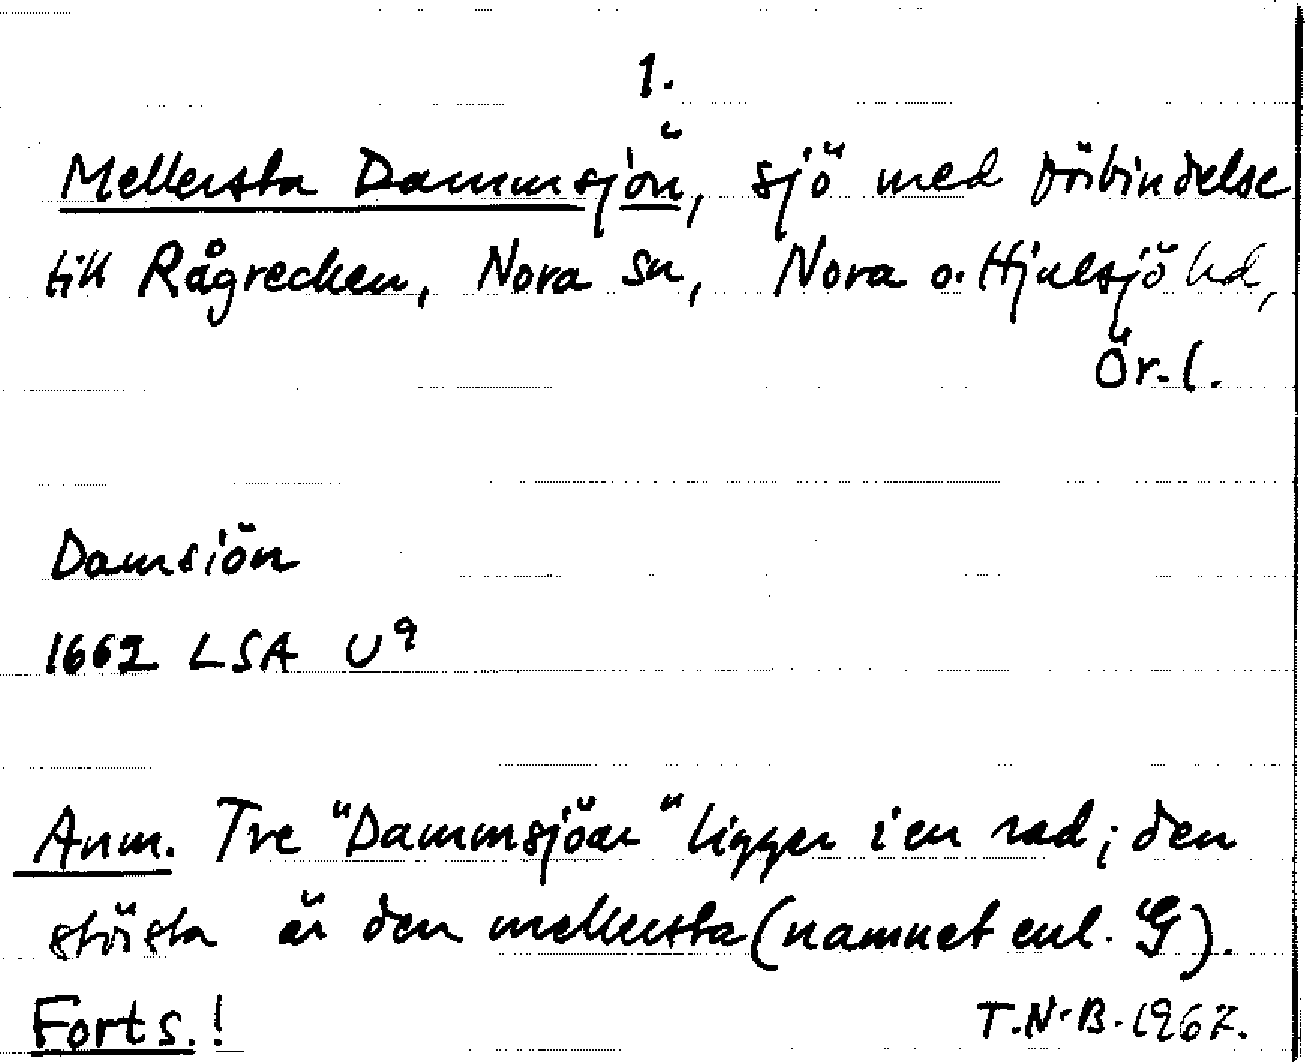 1.
Mellersta Dammsjön, sjö med förbindelse
till Rågrecken, Nora sn, Nora o. Hjulsjö hd,
Ör. l.
Damsiön
1662 LSA U9
Anm. Tre "Dammsjöar" ligger i en rad; den
största är den mellersta (namnet enl. G).
Forts.!
T.N.B. 1967.